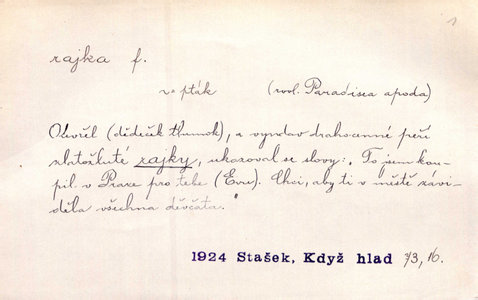 1
rajka f.
zo pták (zool. Paradisea apoda)
Otevřel (dědeček tlumok), a vyndav drahocenné peří
zlatožluté rajky, ukazoval se slovy: „To jsem kou-
pil v Praze pro tebe (Evu). Chci, aby ti v městě závi-
děla všechna děvčata.“
1924 Stašek, Když hlad 1/3, 16.